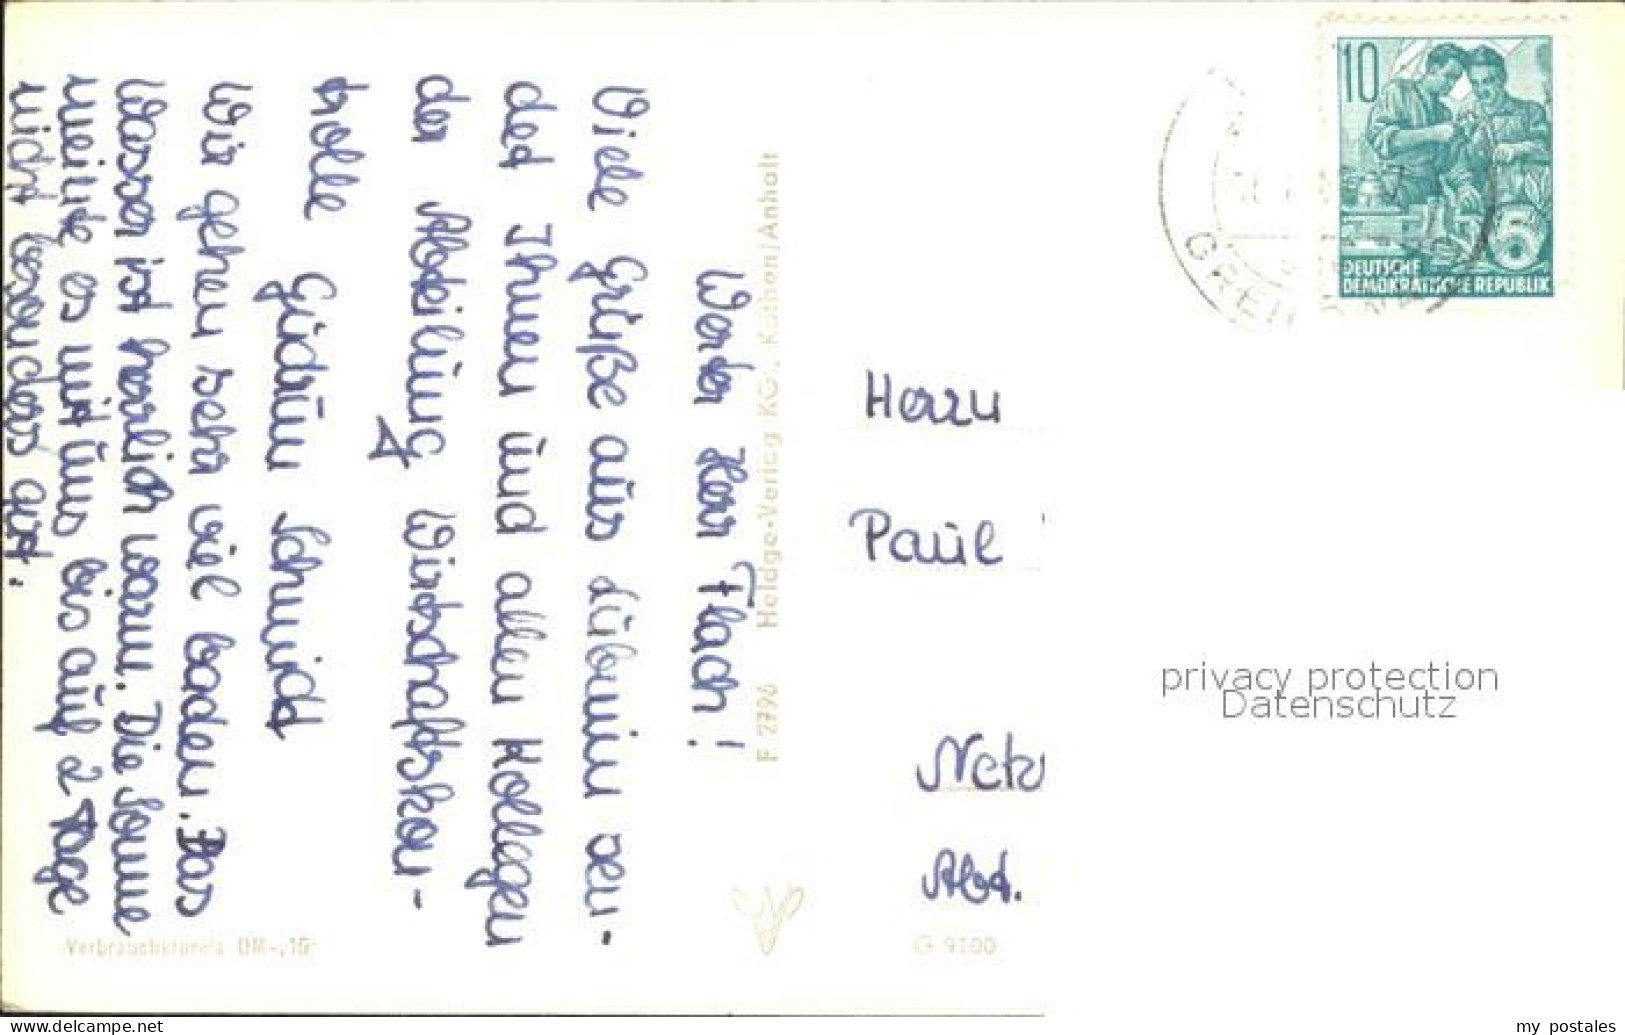 Werter Herr Flach!
Viele Grüße aus Lubmin sen-
det Ihnen und allen Kollegen
der Abteilung Wirtschaftskon-
trolle
Gudrun Schmidt
Wir gehen sehr viel baden. Das
Wasser ist herrlich warm. Die Sonne
meinte es mit uns bis auf 2 Tage
nicht besonders gut.
F 2796 Heldge-Verlag KG., Köthen/Anhalt
Verbraucherpreis DM -,15
G 9100
10
5
DEUTSCHE
DEMOKRATISCHE REPUBLIK
Herrn
Paul
Abt.
privacy protection
Datenschutz
www.delcampe.net
my_postales